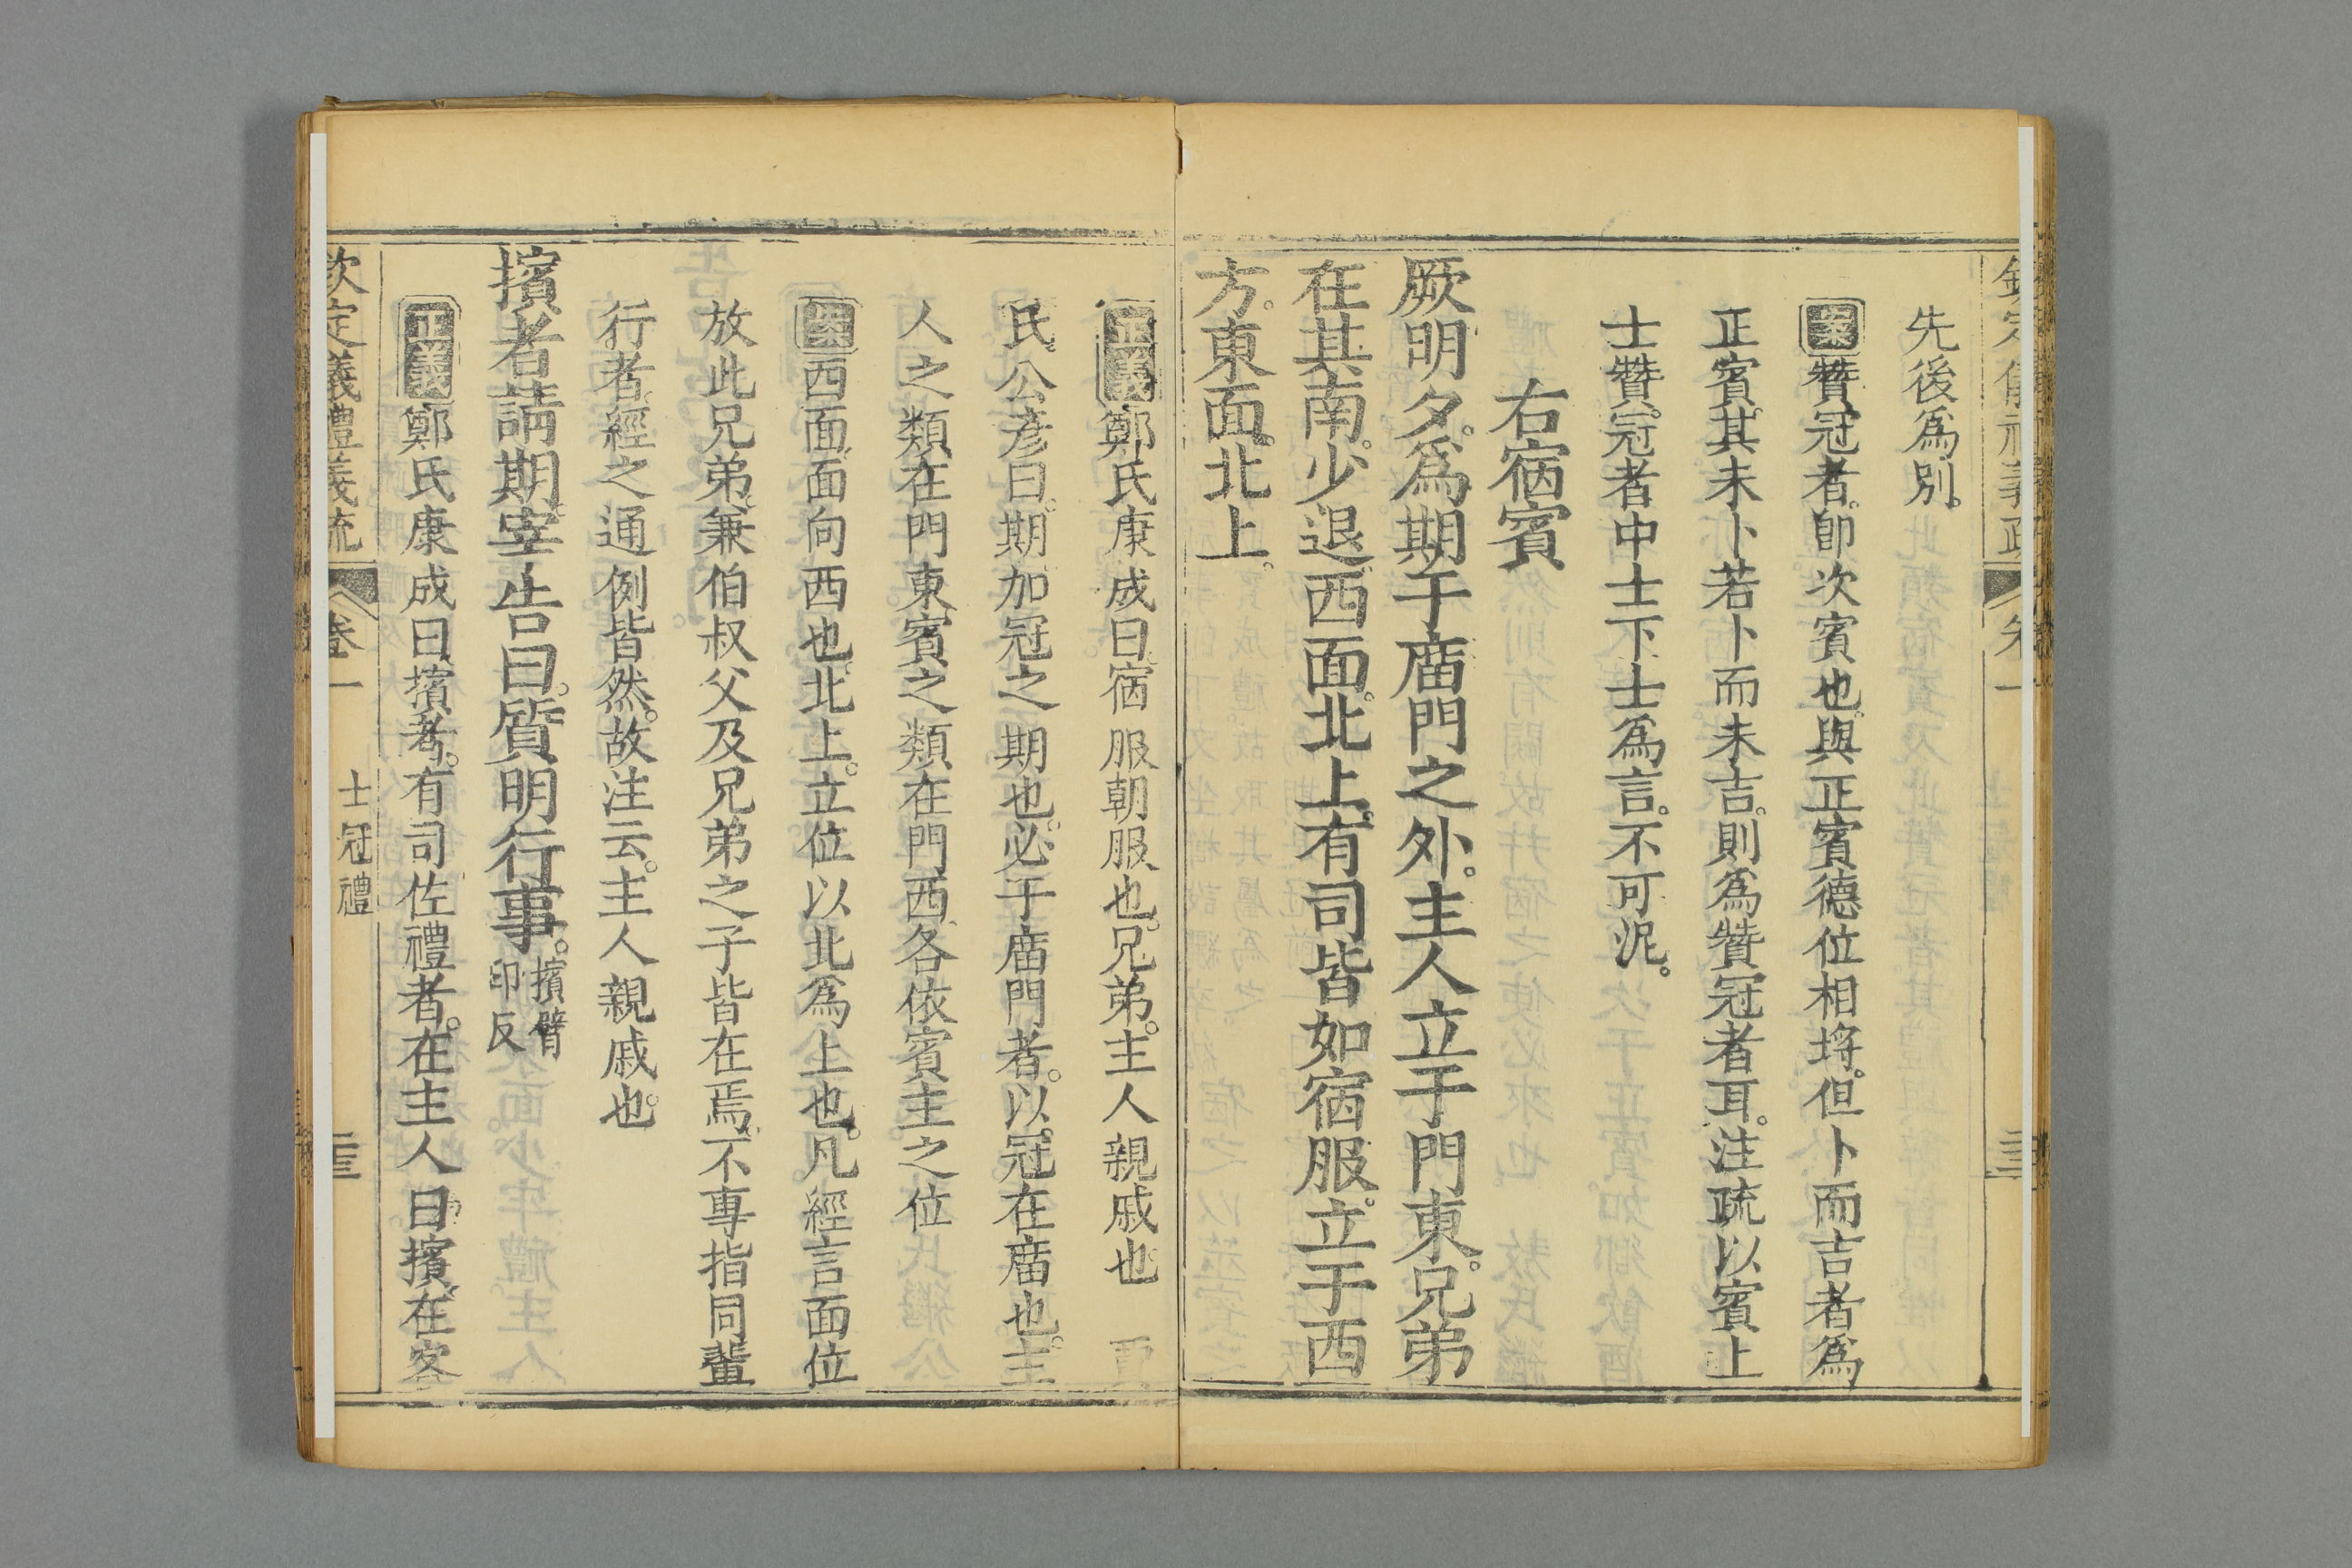 先後爲別。
案贊冠者。卽次賓也。與正賓德位相將。但卜而吉者爲
正賓。其未卜若卜而未吉。則爲贊冠者耳。注疏以賓上
士贊。冠者中士下士爲言。不可泥。
右宿賓
厥明夕。爲期于廟門之外。主人立于門東。兄弟
在其南。少退。西面。北上。有司皆如宿服。立于西
方。東面。北上。
正義鄭氏康成曰宿服朝服也。兄弟。主人親戚也 賈
氏公彥曰。期。加冠之期也。必于廟門者。以冠在廟也。主
人之類在門東賓之類在門西。各依賓主之位
案西面。面向西也。北上。立位以北爲上也。凡經言面位
放此兄弟。兼伯叔父及兄弟之子皆在焉。不專指同輩
行者。經之通例皆然。故注云。主人親戚也。
擯者請期。宰告曰。質明行事。擯臂印反
正義鄭氏康成曰擯者。有司佐禮者。在主人曰擯。在客
欽定儀禮義疏 卷一 士冠禮